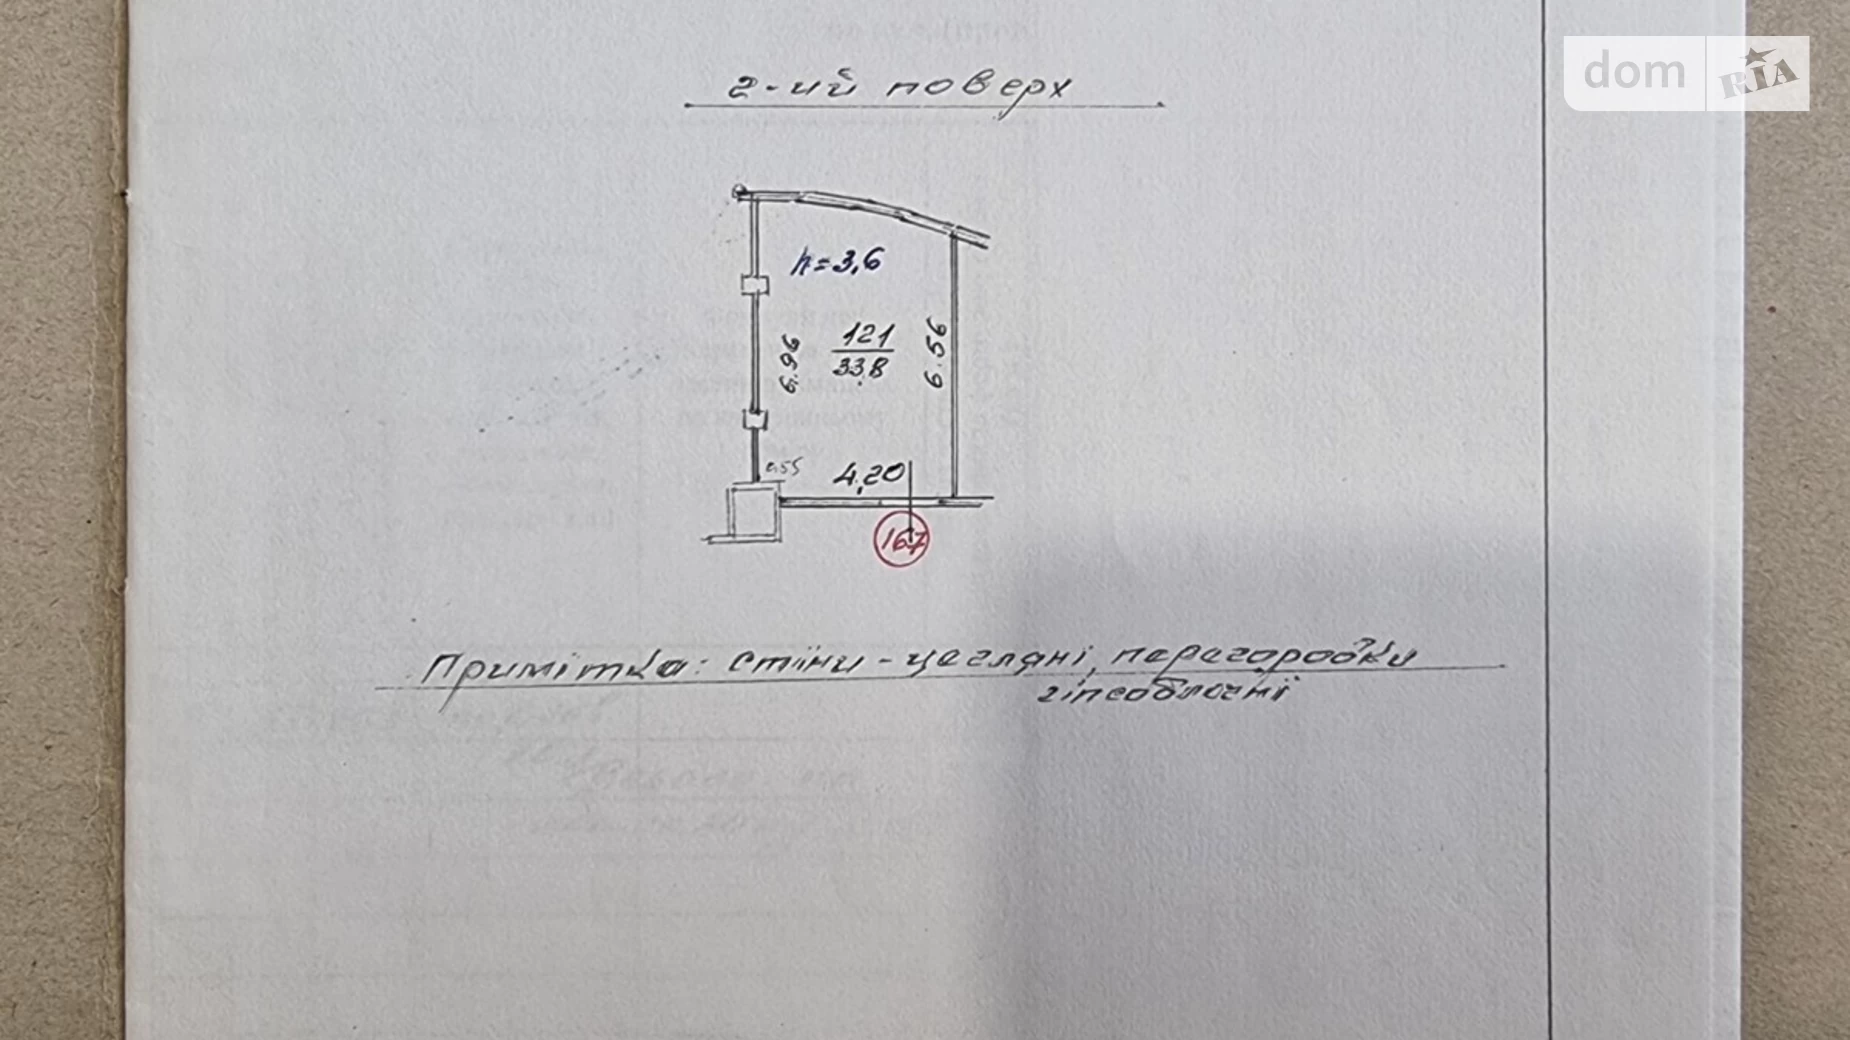 dom RIA
2-ий поверх
h=3,6
121
33,8
6.96
6.56
0,55
4,20
167
Примітка: стіни - цегляні, перегородки
гіпсоблочні